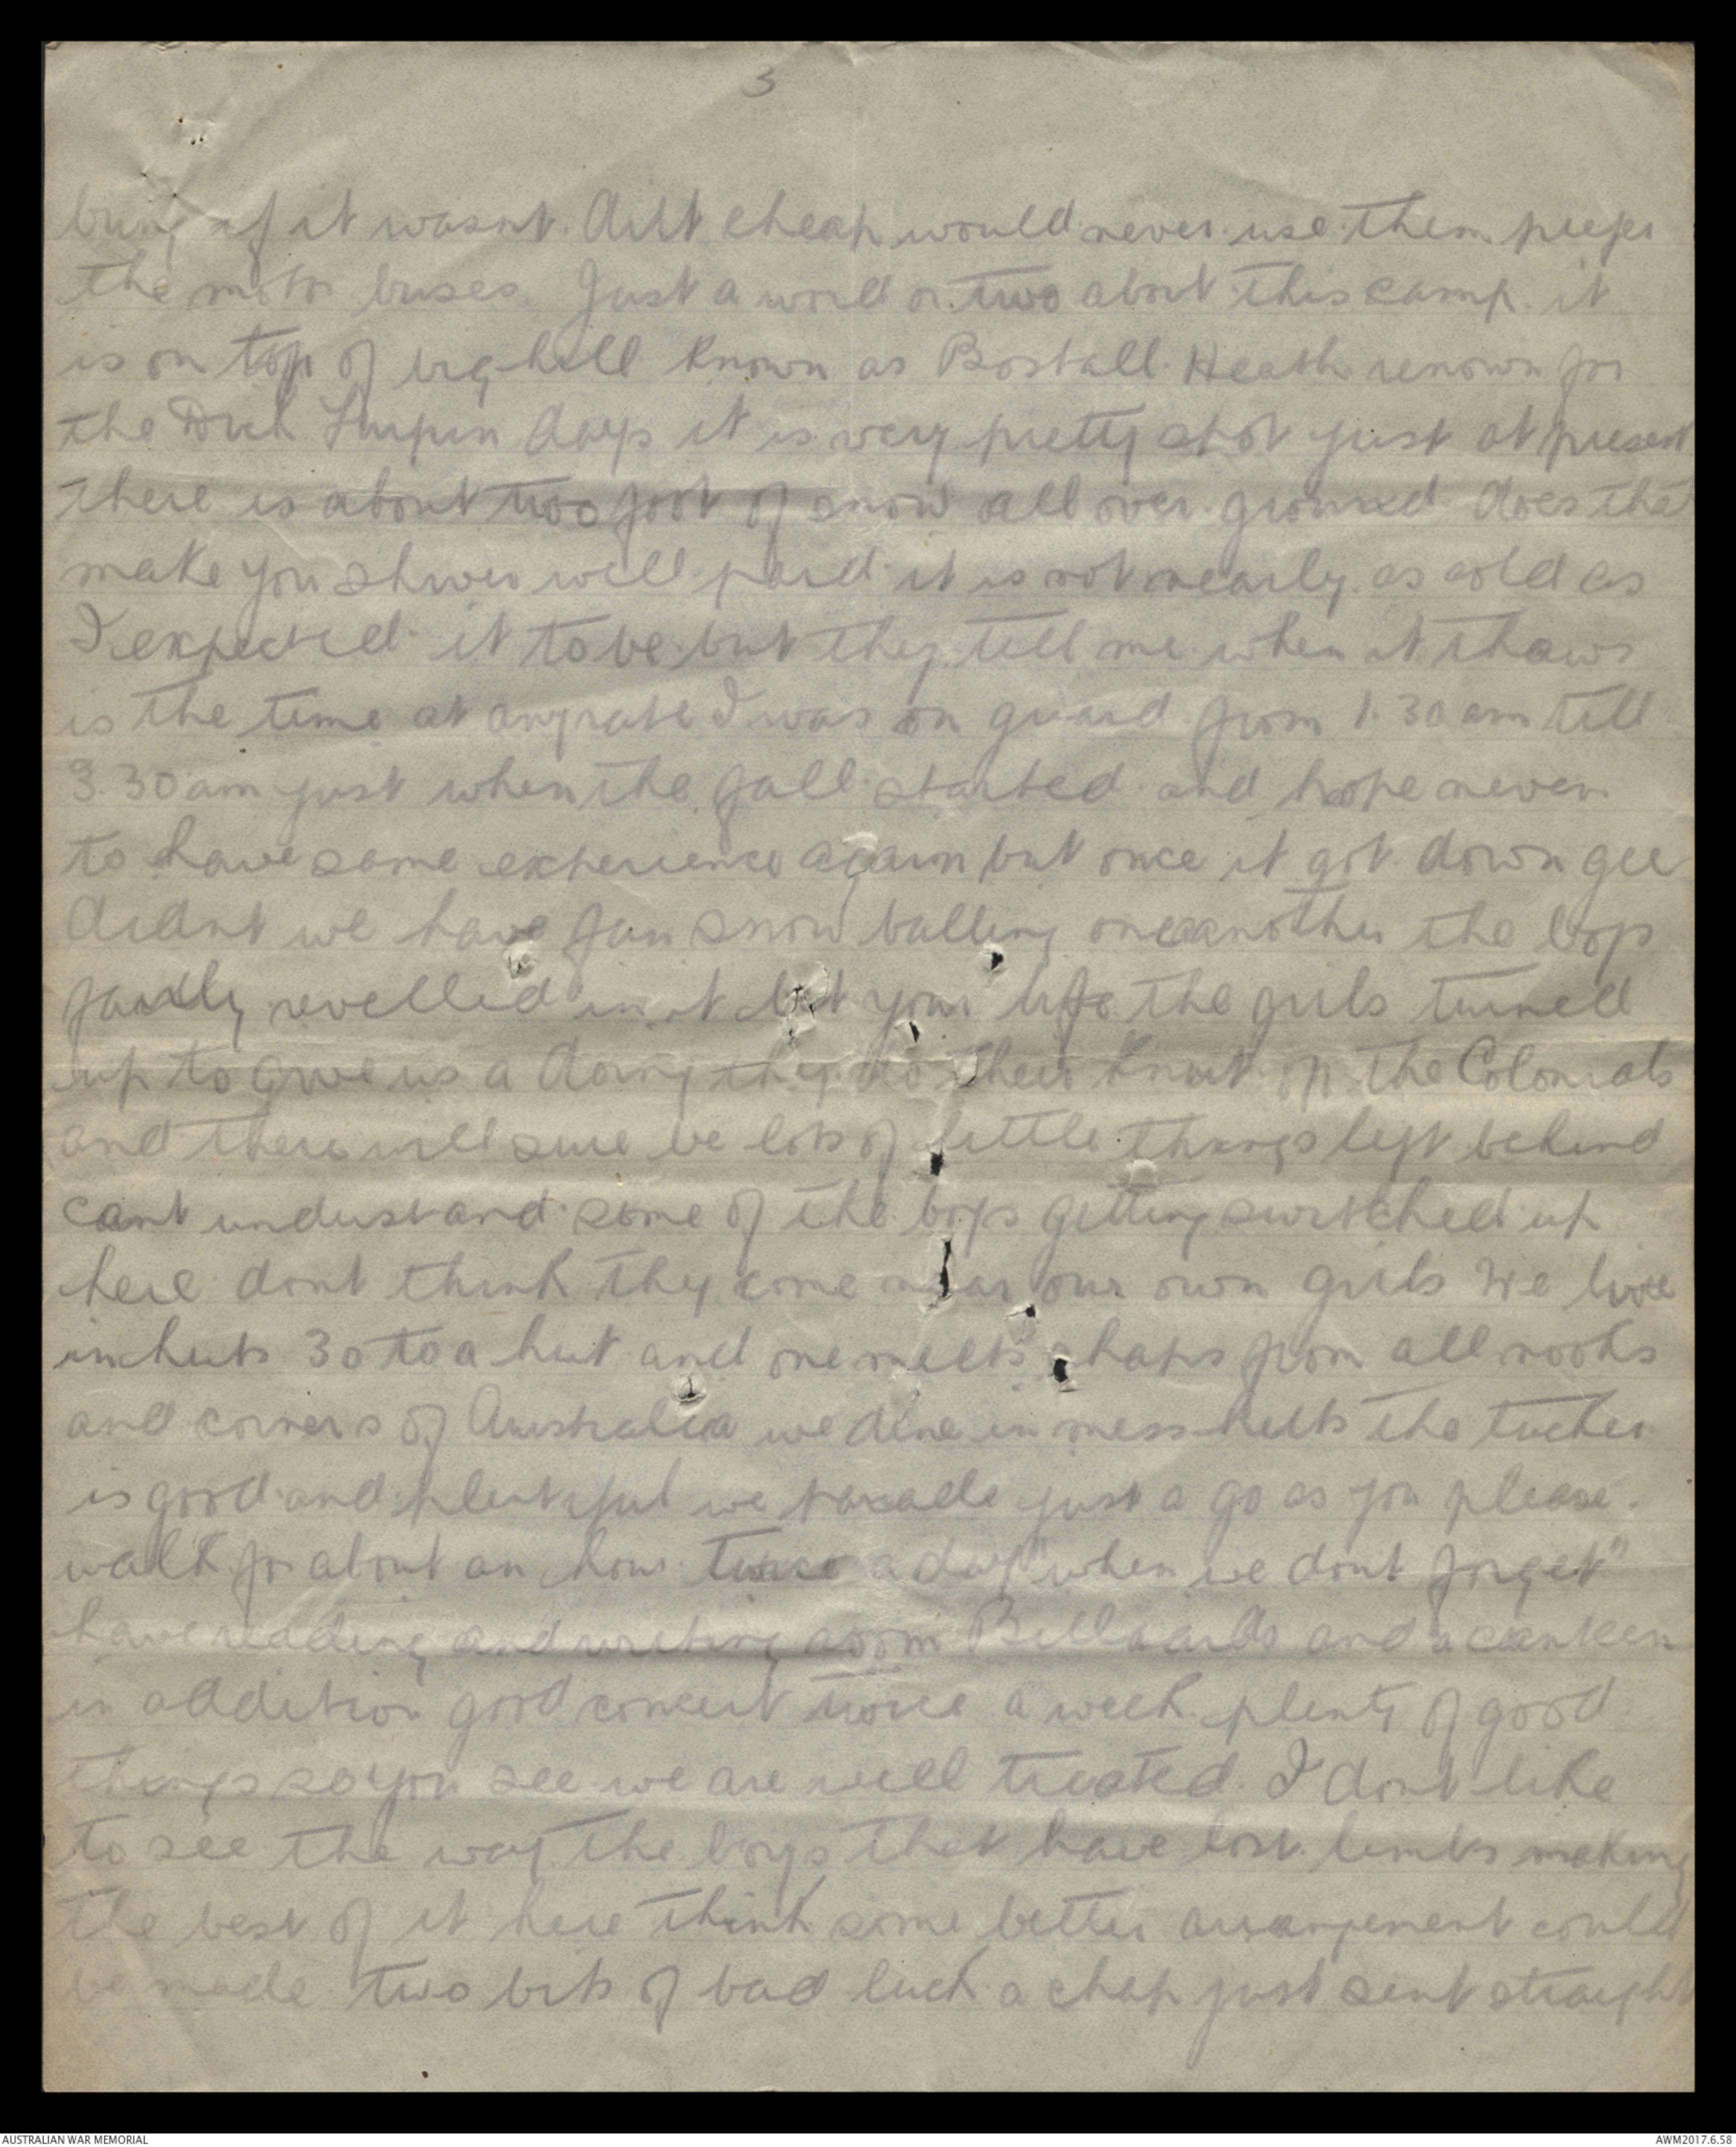 3
bung if it wasnt dirt cheap would never use them prefer
the motor buses. Just a word or two about this camp. it
is on top of big hill known as Bostall Heath renown for
the Dick Turpin days it is very pretty spot just at present
there is about two foot of snow all over ground does tha
make you shiver well paid it is not nearly as cold as
I expected it to be but they tell me when it thaws
is the time at anyrate I was on guard from 1.30 am till
3.30 am just when the fall started and hope never
to have same experience again but once it got down gee
didnt we have fun snow balling oneanother the boys
fairly revelled in it bet your life the girls turned
up to give us a doing they do their knut on the Colonials
and there will sure be lots of little things left behind
cant understand some of the boys getting switched up
here dont think they come near our own girls We live
in huts 30 to a hut and one meets chaps from all nooks
and corners of Australia we dine in mess huts the tucker
is good and plentiful we parade just a go as you please.
walk for about an hour twice a day "when we dont forget"
have reading and writing room Billiards and a canteen
in addition good concert twice a week plenty of good
things so you see we are well treated. I dont like
to see the way the boys that have lost limbs making
the best of it here think some better arrangement could
be made two bits of bad luck a chap just sent straight
AUSTRALIAN WAR MEMORIAL
AWM2017.6.58